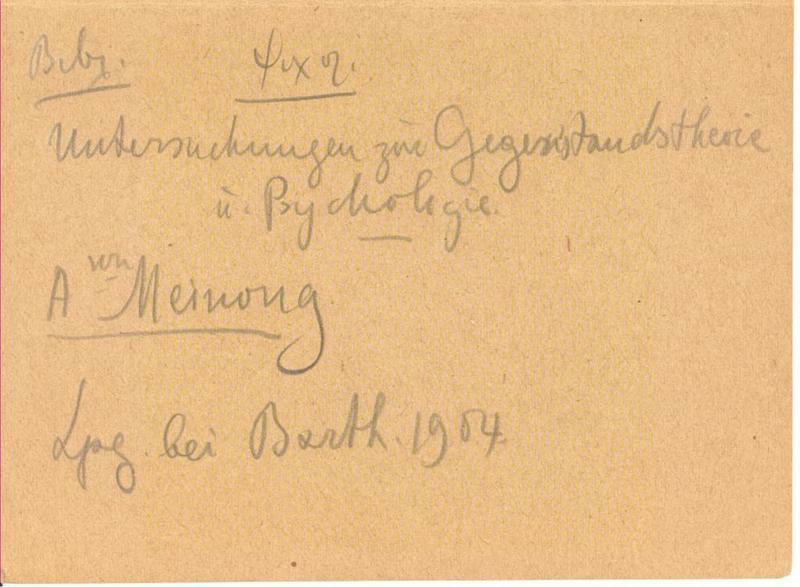 Untersuchungen zur Gegenstandstheorie
u. Psychologie.
A von Meinong
Lpzg. bei Barth. 1904